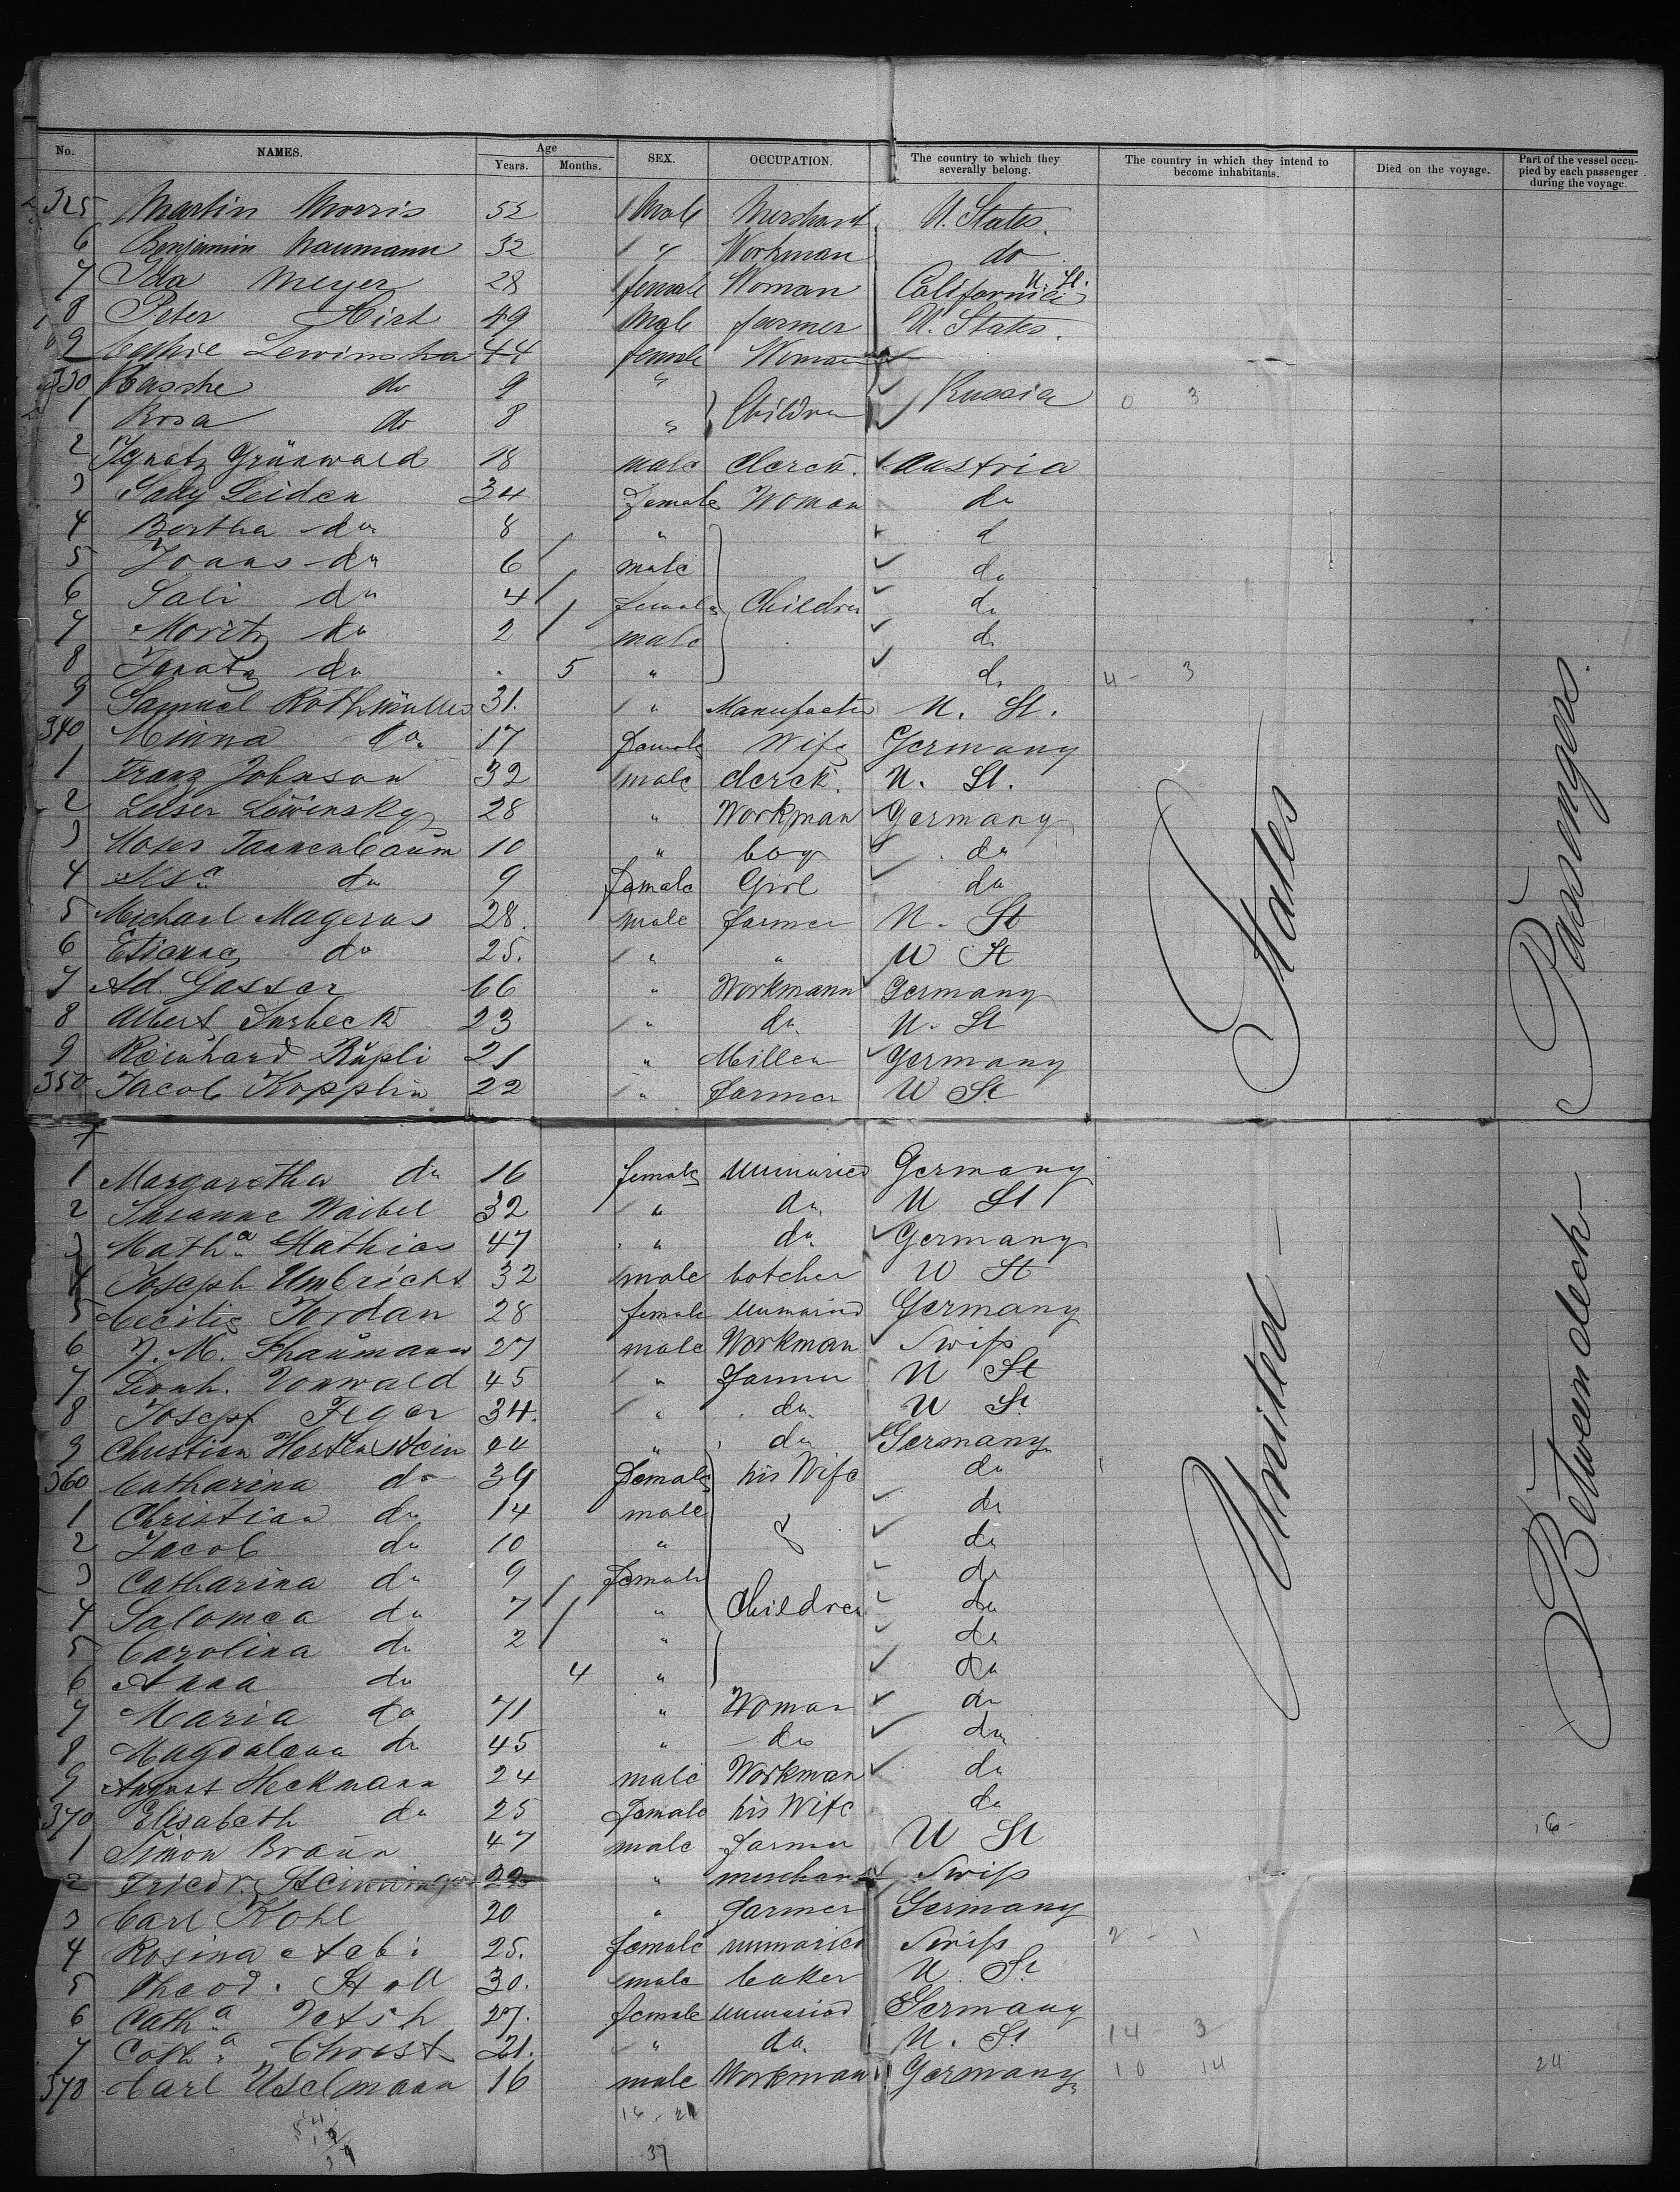 No. NAMES. Age Years. Months. SEX. OCCUPATION. The country to which they severally belong. The country in which they intend to become inhabitants. Died on the voyage. Part of the vessel occupied by each passenger during the voyage.
325 Martin Morris 52 Male Merchant U. States.
6 Benjamin Naumann 32 " Workman do
7 Ida Meyer 28 female Woman California U. St.
8 Peter Hirt 49 Male farmer U. States.
9 Lewinsha 44 female Woman
330 Rasche do 9 " Children Russia 0 3
1 Rosa do 8 "
2 Ignatz Grünwald 18 male Clerck. Austria
3 Sady Leiden 34 Female Woman do
4 Bertha do 8 " d
5 Jonas do 6 male do
6 Sali do 4 female Children do
7 Moritz do 2 male do
8 Ignatz do . 5 " do 4 - 3
9 Samuel Rothmüller 31. " Manufactur U. St.
340 Minna do 17 Female Wife Germany
1 Franz Johnson 32 male clerck. U. St.
2 Leiser Lewinsky 28 " Workman Germany
3 Moses Tannenbaum 10 " boy do
4 do 9 Female Girl do
5 Michael Mageras 28. male farmer U. St
6 Etienne do 25. " " U St
7 Ad. Gasser 66 " Workmann Germany
8 Albert Surbeck 23 " do U. St
9 Reinhard Rüpli 21 " Miller Germany
350 Jacob Kopplin 22 " Farmer U St
1 Margaretha do 16 female unmaried Germany
2 Susanne Waibel 32 " do U St
3 Math.a Mathias 47 " do Germany
4 Joseph Umbricht 32 male botcher U St
5 Cecilie Jordan 28 female unmaried Germany
6 J. M. Shaümann 27 male Workman Swiss
7 Leonh. Vonwald 45 " Farmer U St
8 Joseph Feger 34. " do U St
9 Christian Hertenstein 44 " do Germany
360 Catharina do 39 Female his Wife do
1 Christian do 14 male & do
2 Jacob do 10 " do
3 Catharina do 9 Female do
4 Salomea do 7 " Children do
5 Carolina do 2 " do
6 Anna do 4 " do
7 Maria do 71 " Woman do
8 Magdalena do 45 " do do
9 August Heckmann 24 male Workman do
370 Elisabeth do 25 Female his Wife do 6
1 Simon Braun 47 male Farmer U St
2 Friedr. 22 " merchant Swiss
3 Carl Kohl 20 " farmer Germany
4 Rosina Aebi 25. female unmaried Swiss 2 - 1
5 Theod. Stoll 30. male baker U. St
6 Cath.a Vetsch 27. female unmaried Germany
7 Cath.a Christ 21. " do U. St 14 - 3
378 Carl Uselmann 16 male Workman Germany 10 14 24
16 - 21
37
United States
Between deck Passengers.